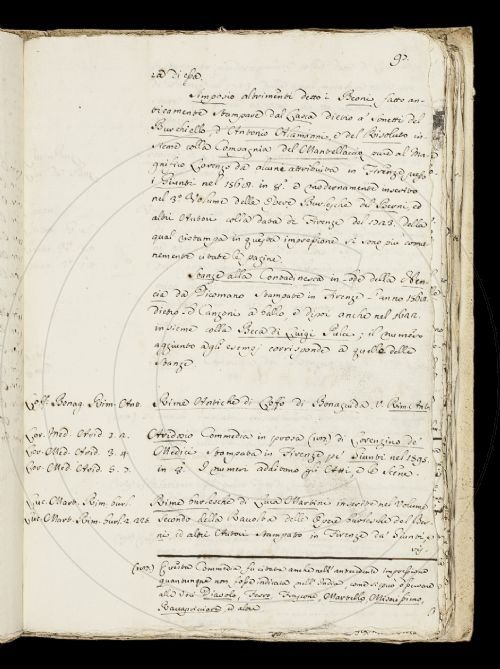 93.
ra di essa.
Simposio altrimenti detto i Beoni, fatto an-
ticamente stampare dal Lasca dietro a' sonetti del
Burchiello, d'Antonio Alamanni, e del Risoluto in-
sieme colla Compagnia del Mantellaccio, pure al Ma-
gnifico Lorenzo da alcuni attribuita in Firenze presso
i Giunti nel 1568. in 8.º e modernamente inserito
nel 3.º Volume delle Opere Burlesche del Berni, ed
altri Autori colla data di Firenze del 1723. della
qual ristampa in questa impressione si sono più comu-
nemente citate le pagine.
Stanze alla Contadinesca in lode della Nen-
cia da Dicomano stampate in Firenze l'anno 1568.
dietro le Canzoni a ballo, e dipoi anche nel 1622.
insieme colla Beca di Luigi Pulci; il numero
aggiunto agli esempj corrisponde a quello delle
Stanze
Loff. Bonag. Rim. Ant. Rime Antiche di Loffo di Bonaguida V. Rim. Ant.
Lor. Med. Arid. 1. 2. Aridosio Commedia in prosa di Lorenzino de'
Lor. Med. Arid. 3. 4. Medici stampata in Firenze pe' Giunti nel 1595.
Lor. Med. Arid. 5. 7. in 8.º I numeri additano gli Atti, e le Scene.
Luc. Mart. Rim. burl. Rime burlesche di Luca Martini inserite nel Volume
Luc. Mart. Rim. burl. 2. 226. Secondo della Raccolta delle Opere burlesche del Ber-
ni, ed altri Autori stampato in Firenze da' Giunti
Questa Commedia fu citata anche nell'antecedente impressione
quantunque non fosse indicata nell'Indice
alle Voci Diavolo, Martello,
ed altre